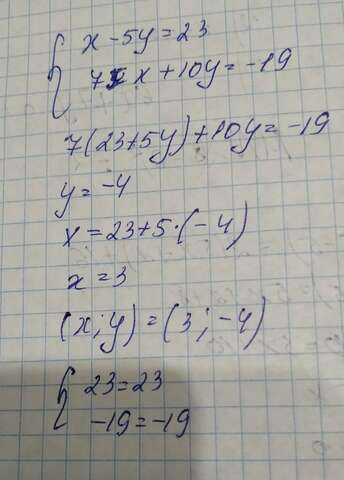 { x - 5y = 23
7x + 10y = -19
7(23+5y)+10y = -19
y = -4
x = 23+5·(-4)
x = 3
(x; y) = (3; -4)
{ 23 = 23
-19 = -19